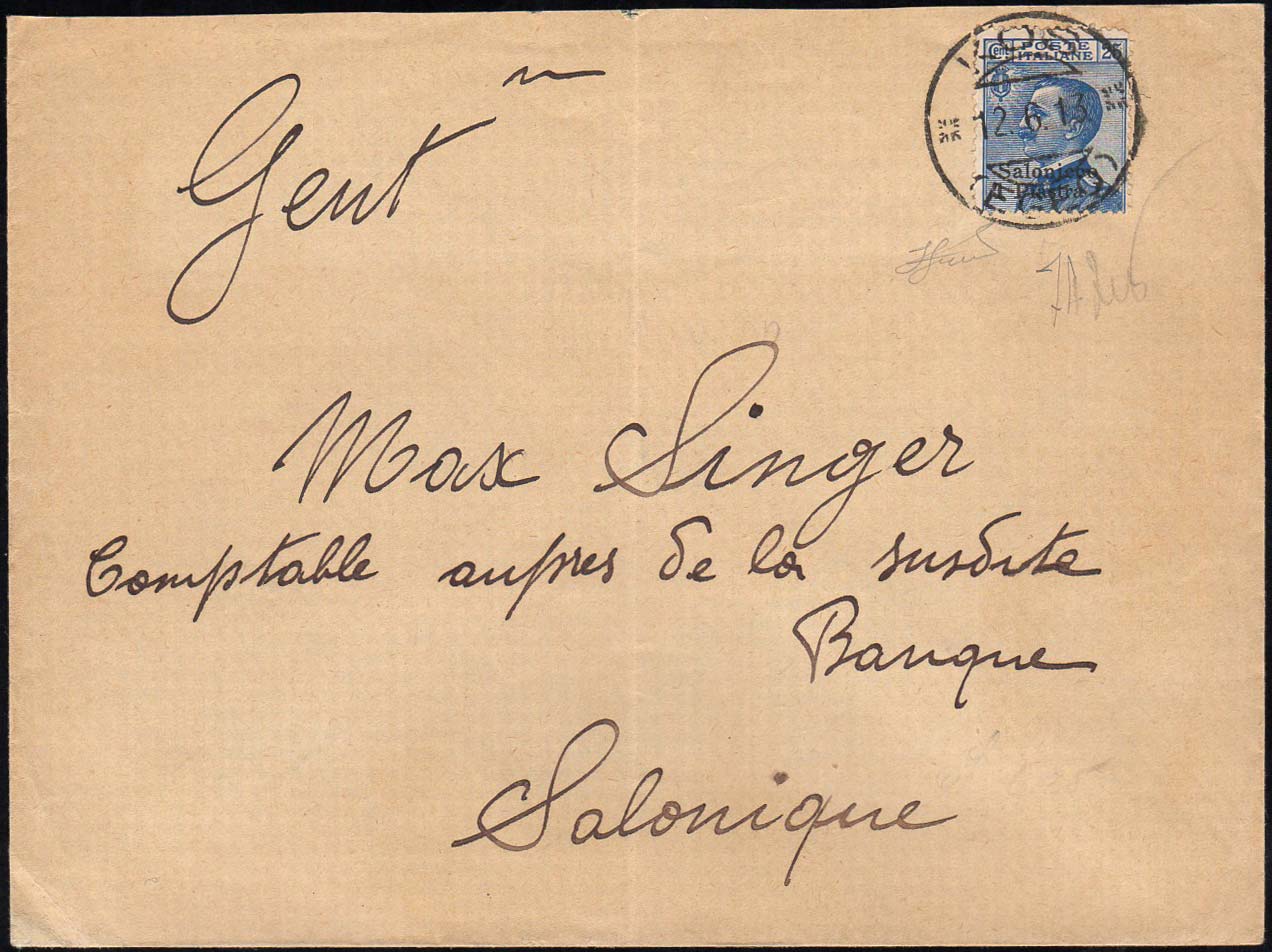 Gent m
Cent POSTE 25
ITALIANE
KOS
12.6.13
(EGEO)
Salonicco
1 Piastra
Max Singer
Comptable aupres de la susdite
Banque
Salonique